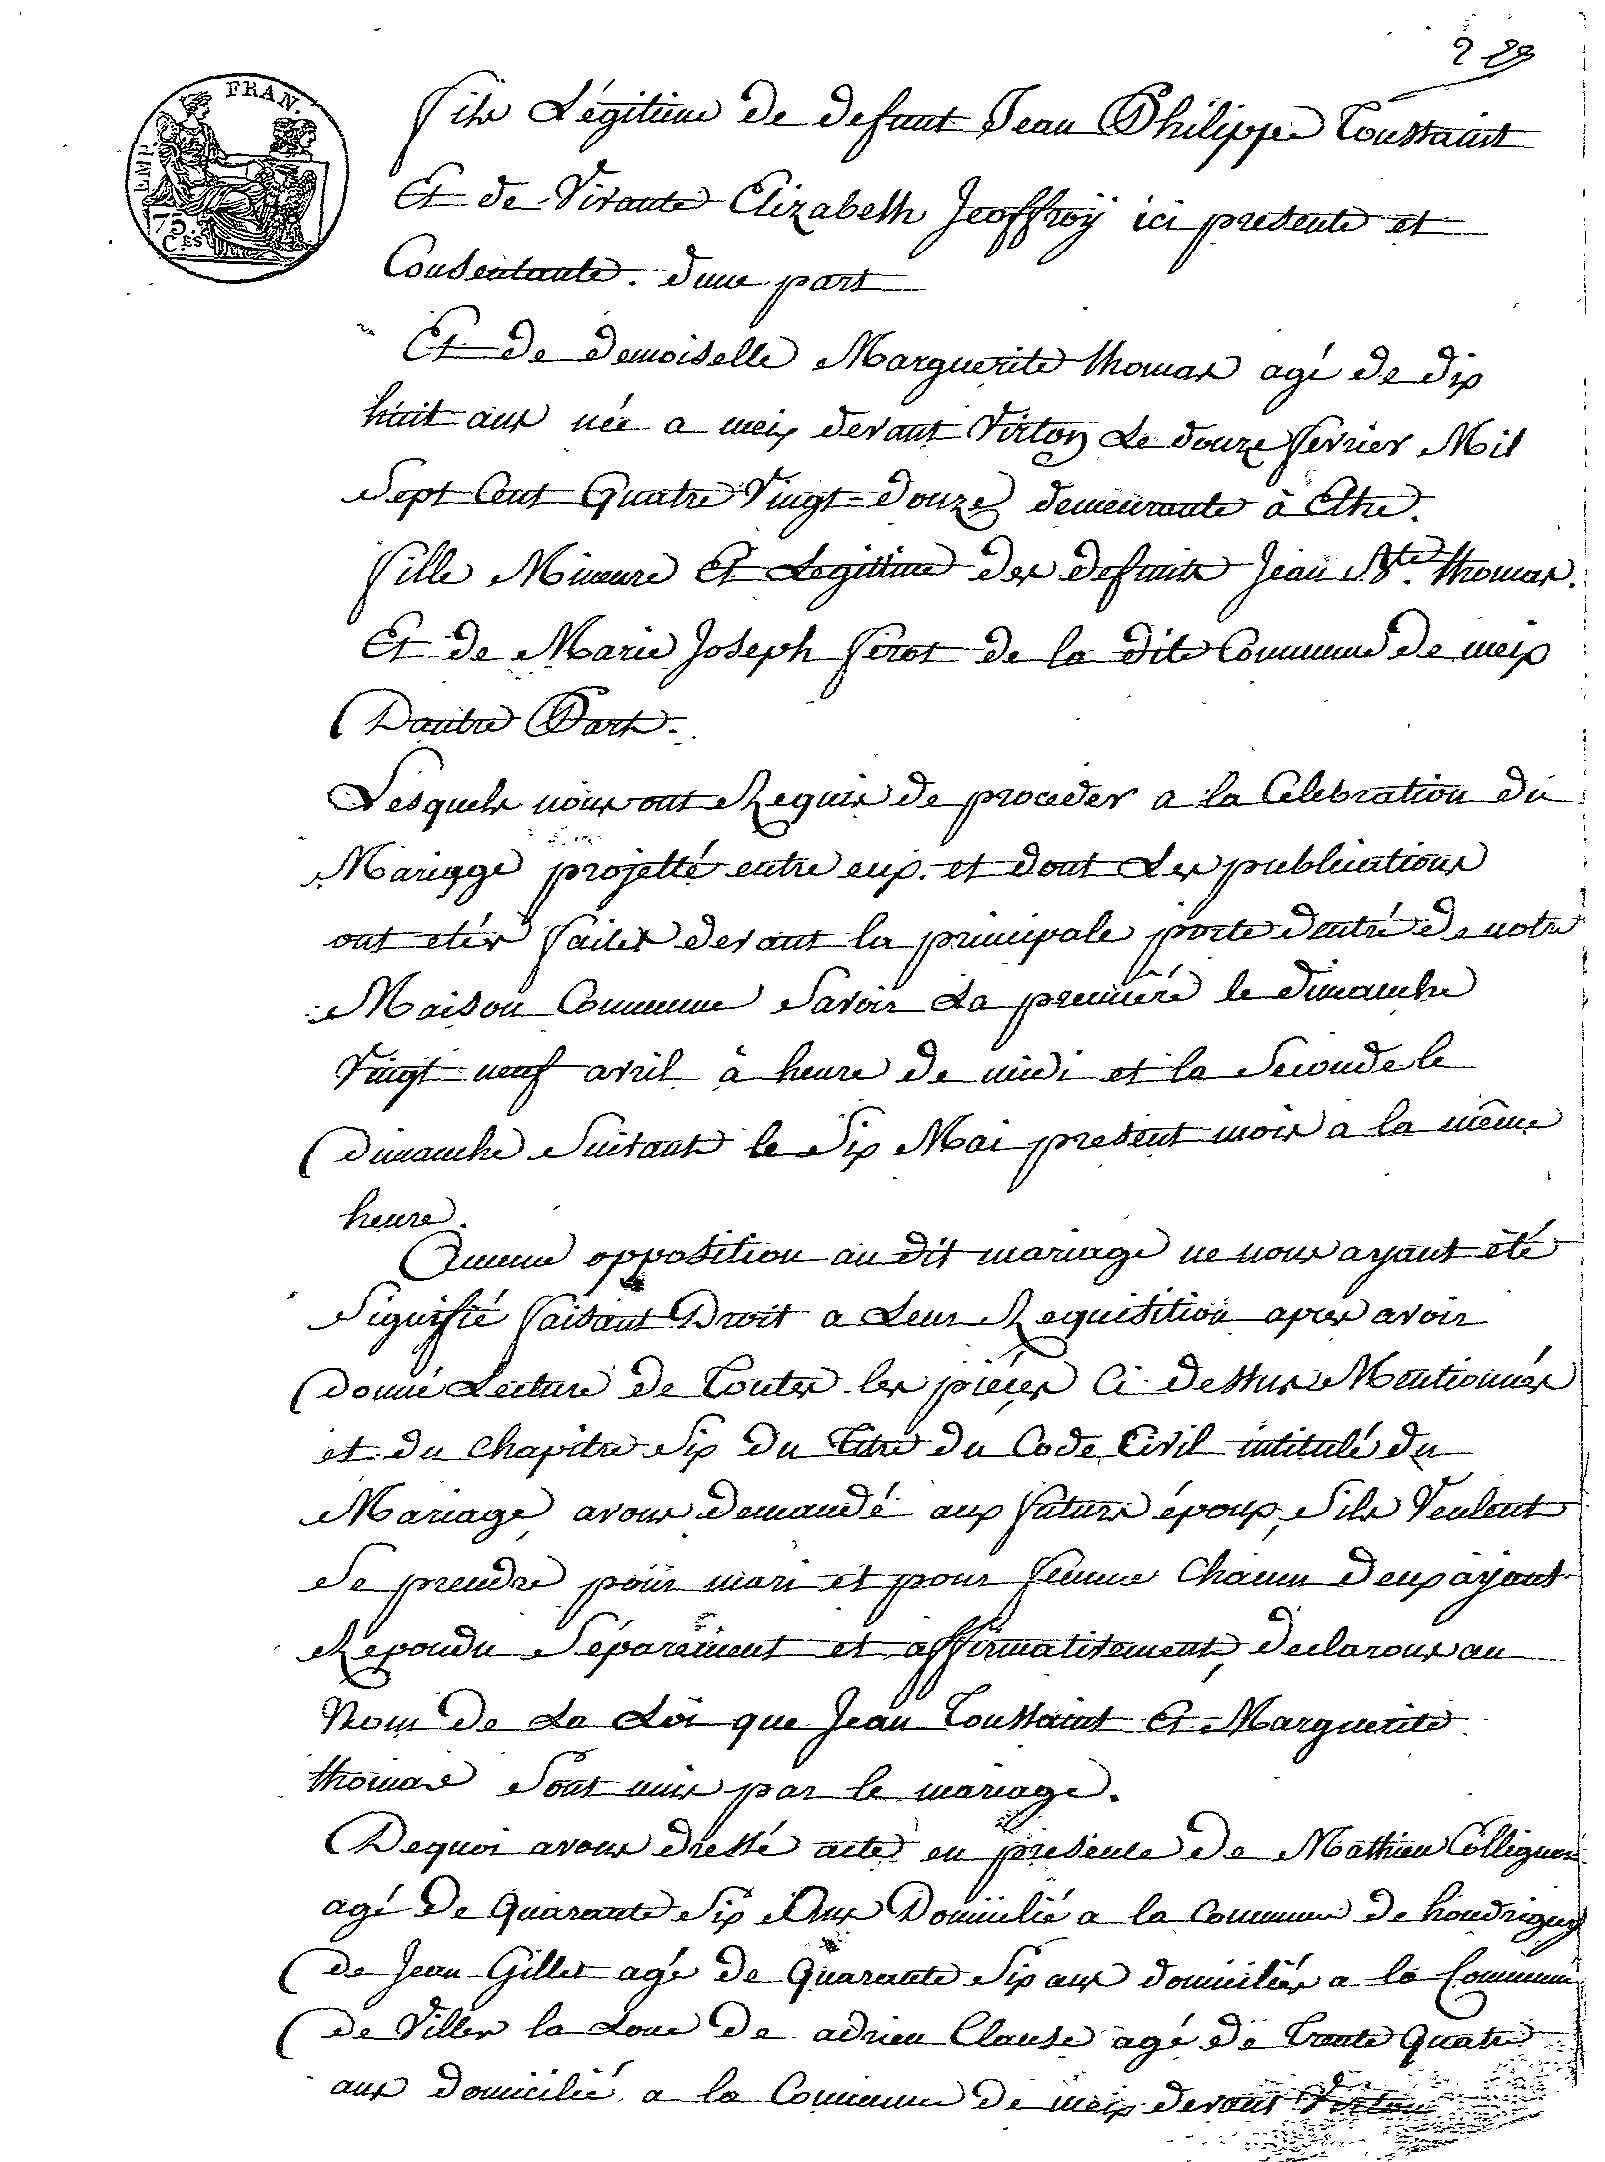 229
EMP. FRAN.
75.
CES
fils Légitime de defunt Jean Philippe Toussaint
Et de Vivante Elizabeth Jeoffroÿ ici presente et
Consentante. dune part
Et de demoiselle Marguerite thomas agé de dix
huit ans née a meix devant Virton Le douze fevrier Mil
Sept Cent Quatre Vingt-douze demeurante à Ethe.
fille Mineure Et Legitime des defunts Jean Bte. thomas.
Et de Marie Joseph firot de la dite Commune de meix
Dautre Part.
Lesquels nous ont Requis de proceder a la Celebration du
Mariage projetté entre eux. et dont Les publications
ont etés faites devant la principale porte dentré de notre
Maison Commune Savoir La premiére le dimanche
Vingt neuf avril à heure de midi et la Seconde le
Dimanche Suivant le Six Mai present mois a la même
heure.
Aucune opposition au dit mariage ne nous ayant été
Signifié faisant Droit a Leur Requisition apres avoir
donné Lecture de Toutes les piéces Ci dessus Mentionnés
et du Chapitre Six du Titre du Code Civil intitulé du
Mariage, avons demandé aux futurs époux, Sils Veulent
Se prendre pour mari et pour femme Chacun deux ayant
Repondu Séparément et affirmativement, declarons au
Nom de La Loi que Jean Toussaint Et Marguerite
thomas Sont unis par le mariage.
Dequoi avons dressé acte en présence de Mathieu Collignon
agé de Quarante Six Ans Domicilié a la Commune de houdrigny
de Jean Gillet agé de Quarante Six ans domiciliés a la Commune
de Villers la Loue de adrien Clause agé de Trente Quatre
ans domicilié a la Commune de meix devant Virton